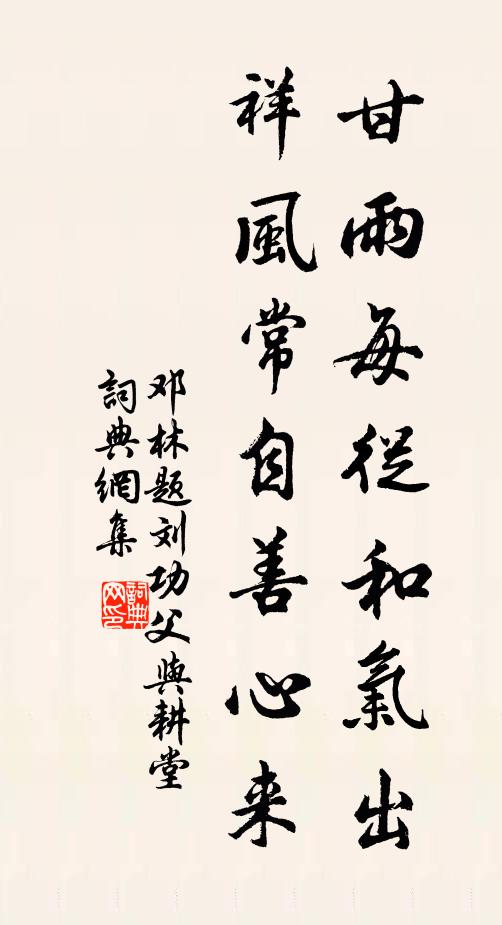 甘雨每從和氣出
祥風常自善心来
邓林题刘功父與耕堂
詞典網集
詞典网印